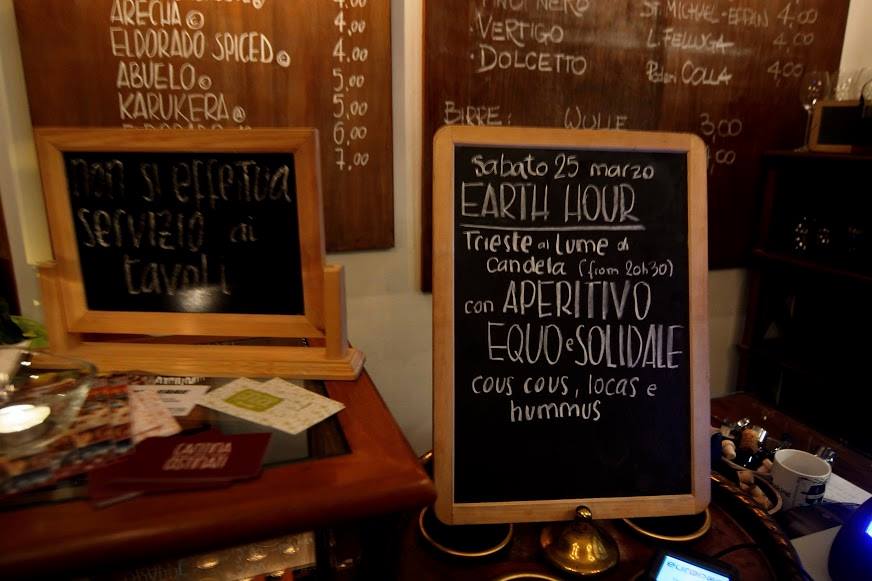 ARECHA ©
ELDORADO SPICED ©
ABUELO ©
KARUKERA @
4,00
4,00
5,00
5,00
6,00
7,00
PINOT NERO ST. MICHAEL-EPPAN 4,00
·VERTIGO L. FELLUGA 4,00
·DOLCETTO Poderi COLLA 4,00
BIRRE: WULLE 3,00
non si effettua
servizio ai
tavoli
sabato 25 marzo
EARTH HOUR
Trieste al Lume di
candela (from 20h30)
con APERITIVO
EQUO e SOLIDALE
cous cous, locas e
hummus